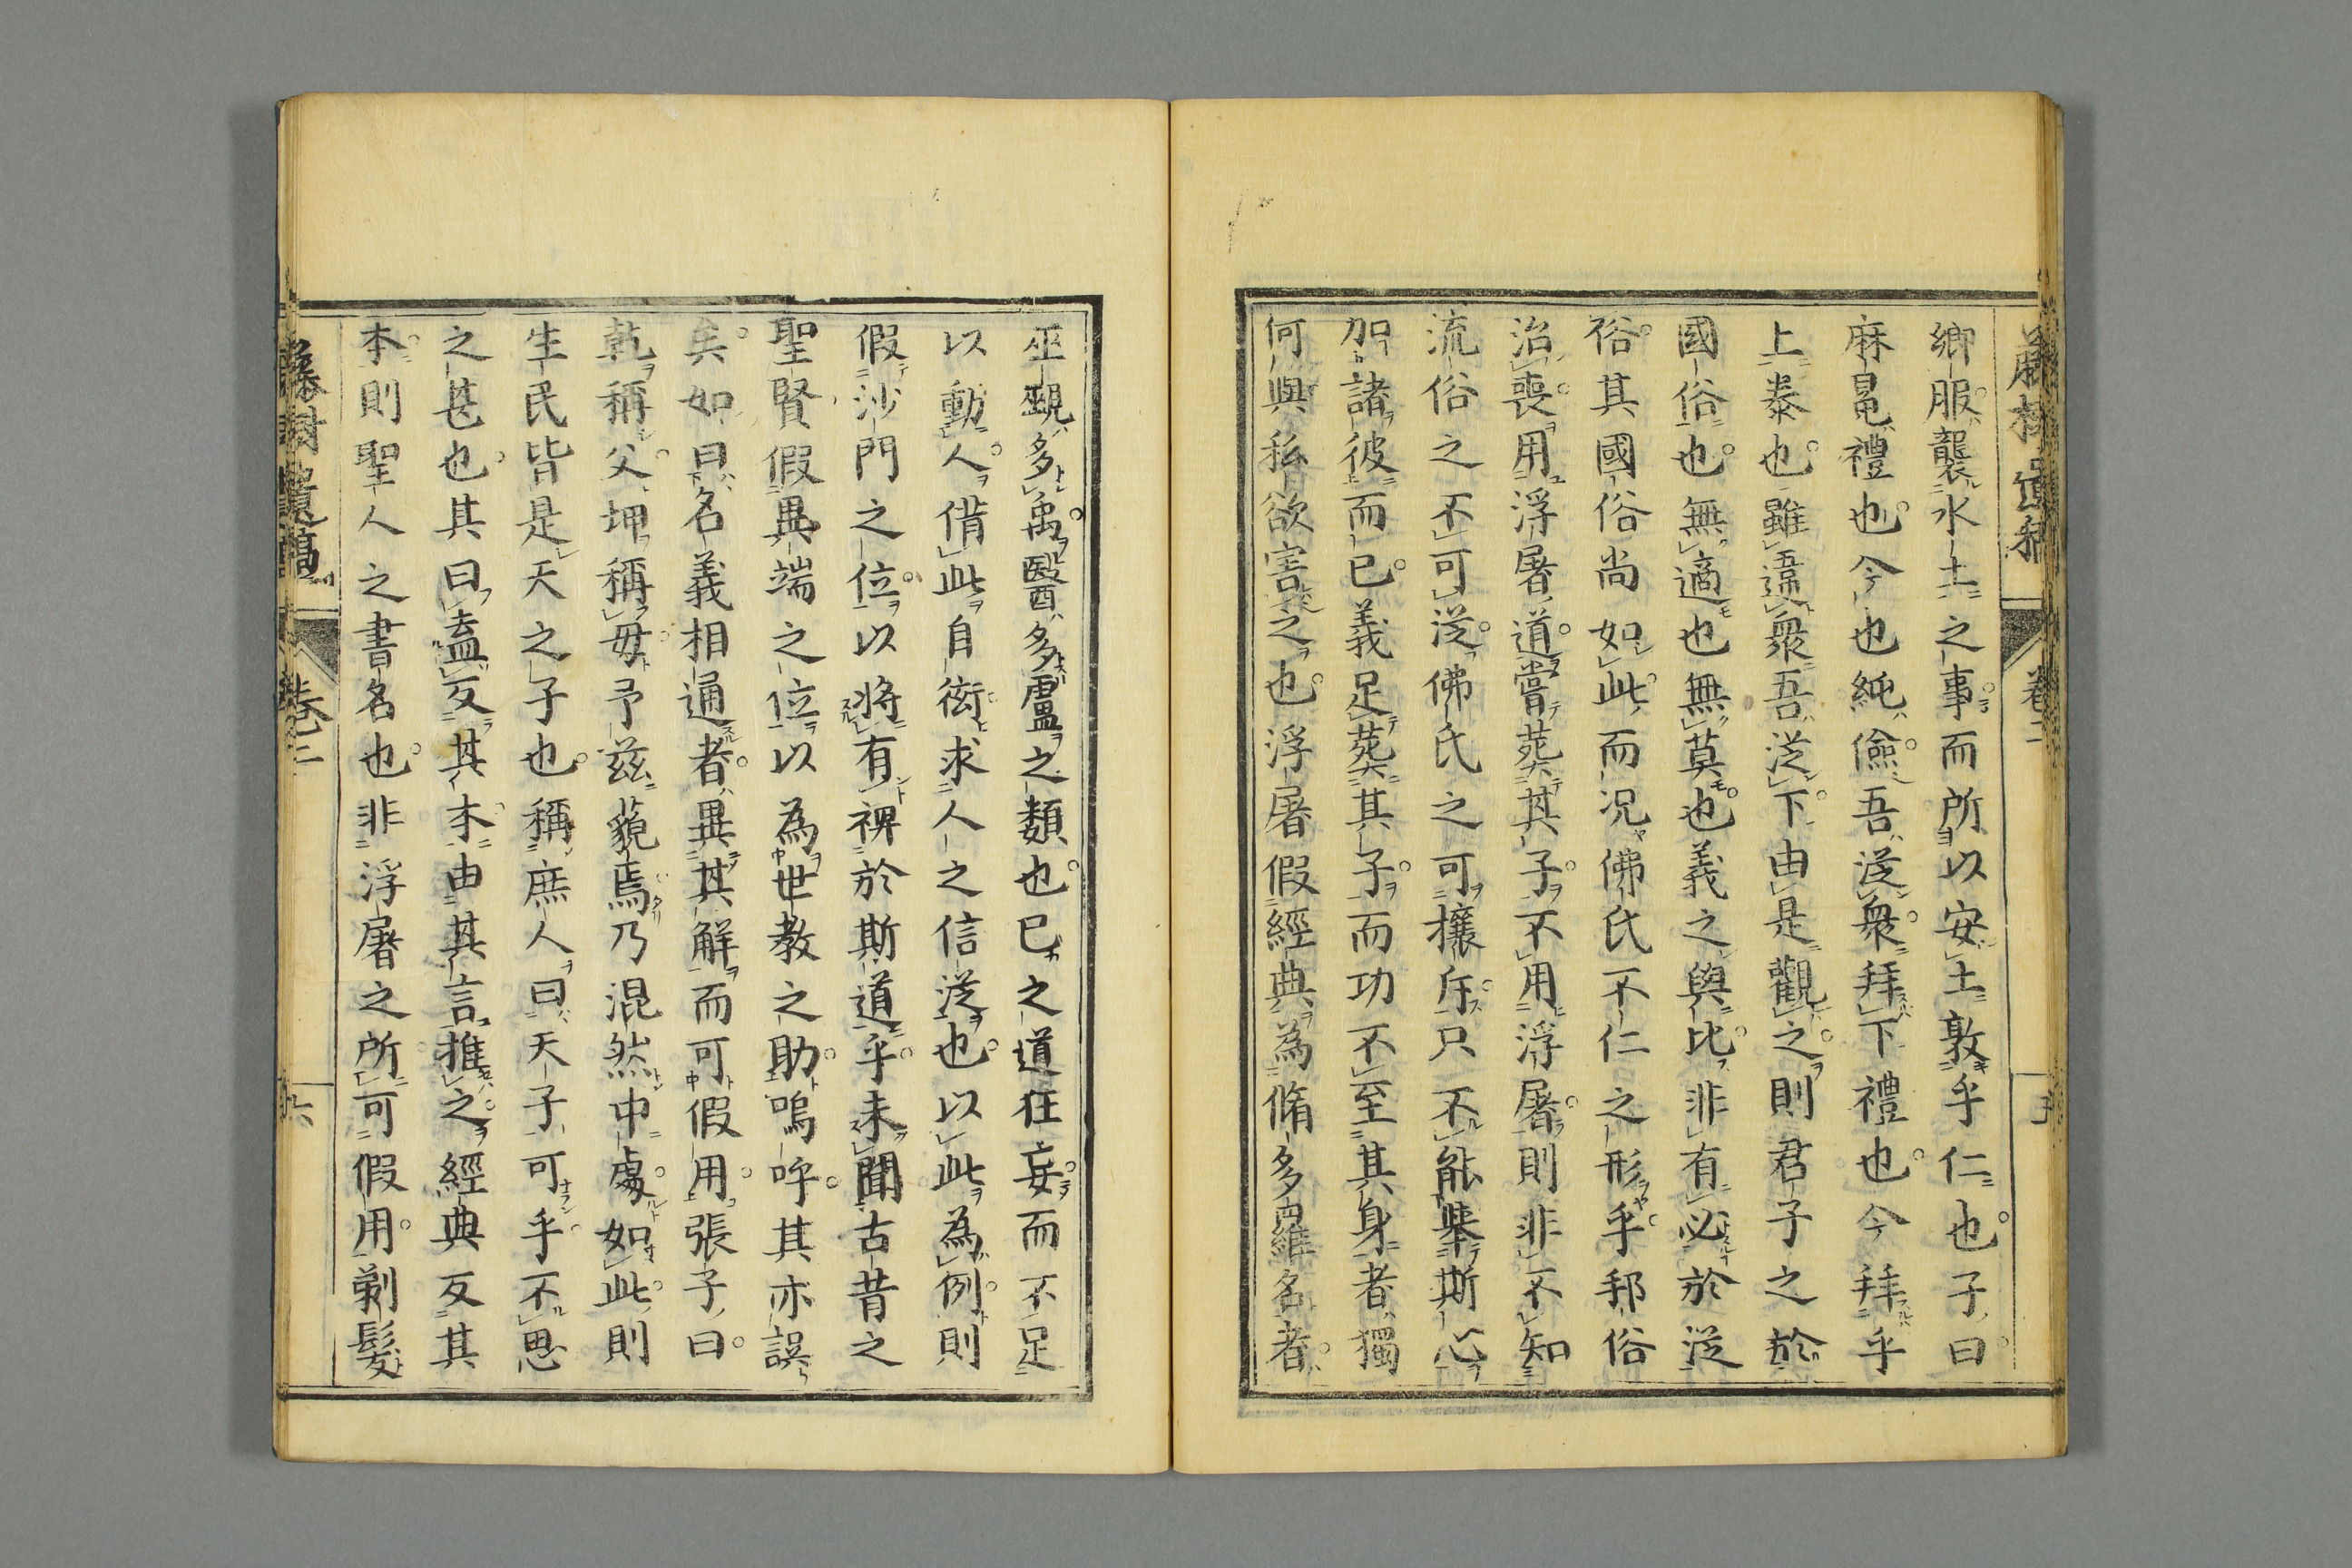 鄉服襲水土之事而所以安土敦乎仁也子曰
麻冕禮也今也純儉吾從衆拜下禮也今拜乎
上泰也雖違衆吾從下由是觀之則君子之於
國俗也無適也無莫也義之與比非有必於從
俗其國俗尚如此而況佛氏不仁之形乎邦俗
治喪用浮屠道嘗葬其子不用浮屠則非不知
流俗之不可從佛氏之可攘斥只不能舉斯心
加諸彼而已義足葬其子而功不至其身者獨
何與私欲害之也浮屠假經典為脩多羅名者
巫覡多禹醫多盧之類也巳之道狂妄而不足
以動人借此自衒求人之信從也以此為例則
假沙門之位以將有裨於斯道乎未聞古昔之
聖賢假異端之位以為世教之助嗚呼其亦誤
矣如曰名義相通者異其解而可假用張子曰
乾稱父坤稱母予茲藐焉乃混然中處如此則
生民皆是天之子也稱庶人曰天子可乎不思
之甚也其曰盍反其本由其言推之經典反其
本則聖人之書名也非浮屠之所可假用剃髮
藤樹遺稿 卷二 六